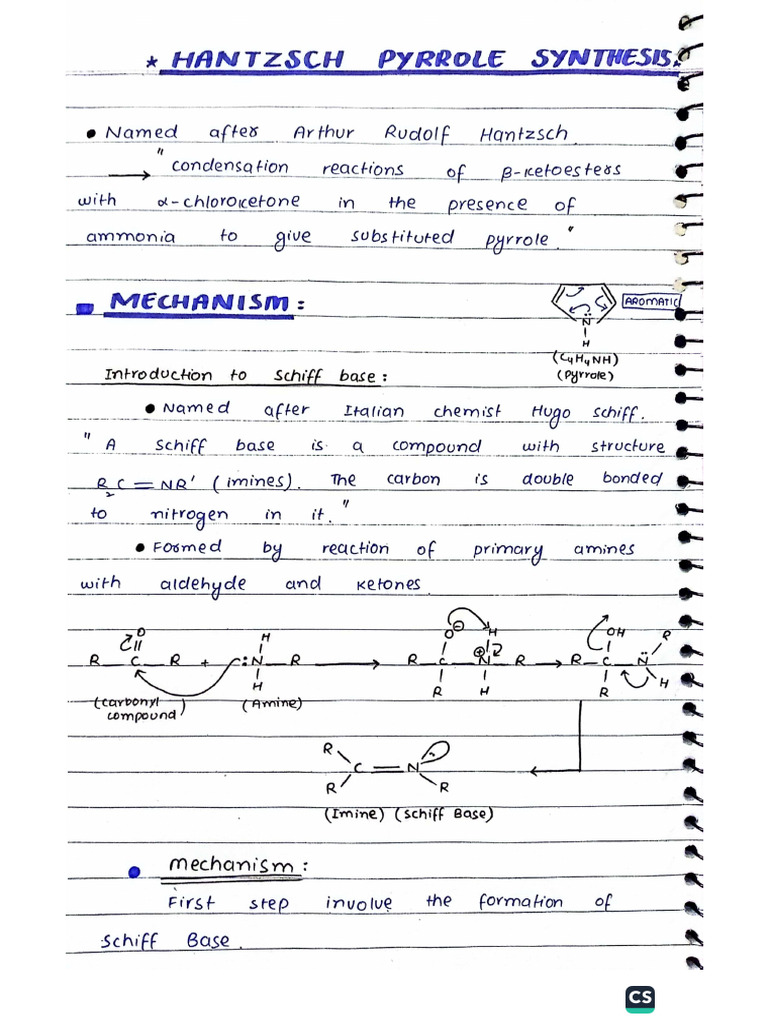 * HANTZSCH PYRROLE SYNTHESIS.
• Named after Arthur Rudolf Hantzsch
→ "condensation reactions of β-ketoesters
with α-chloroketone in the presence of
ammonia to give substituted pyrrole."
MECHANISM:
AROMATIC
N
H
(C4H4NH)
(Pyrrole)
Introduction to Schiff base:
• Named after Italian chemist Hugo Schiff.
"A Schiff base is a compound with structure
R2C=NR' (imines). The carbon is double bonded
to nitrogen in it."
• Formed by reaction of primary amines
with aldehyde and ketones
O H O⊖ H OH R
R — C — R + :N — R → R — C — N⊕ — R → R — C — N̈
H R H R H
(carbonyl compound) (Amine)
R
C = N
R R
(Imine) (Schiff Base)
• mechanism:
First step involve the formation of
Schiff Base.
CS